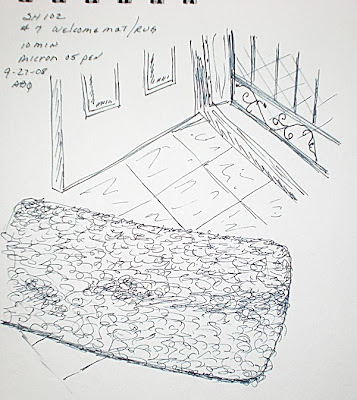 SH 102
# 7 Welcome mat / Rug
10 min
micron 05 pen
9-27-08